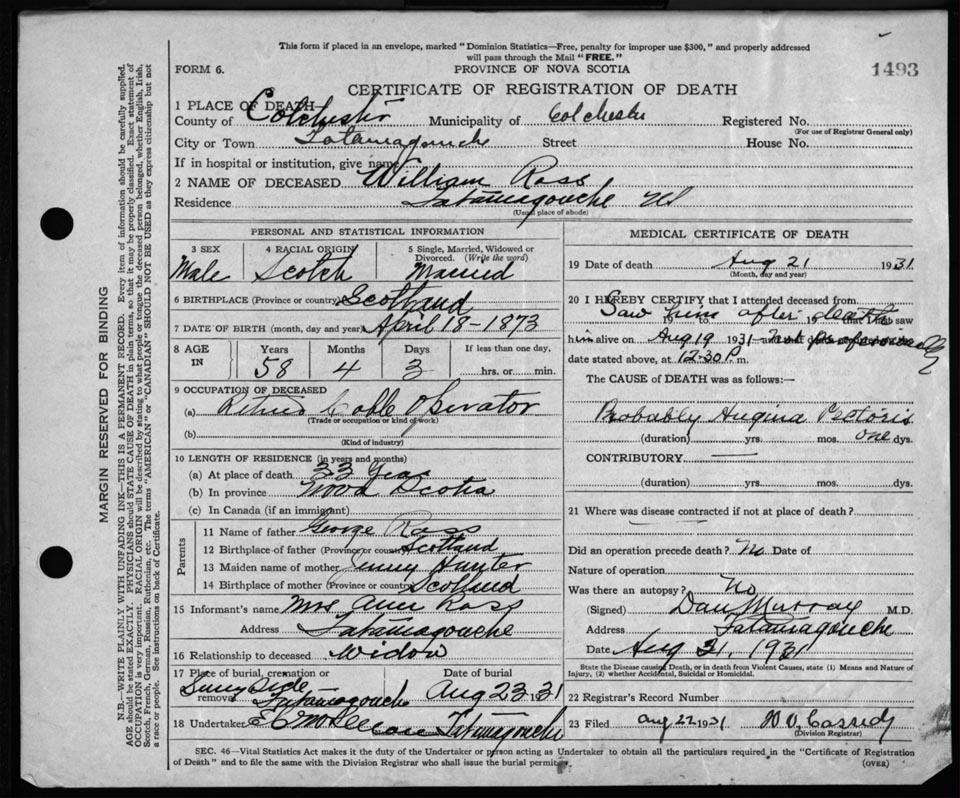 This form if placed in an envelope, marked "Dominion Statistics—Free, penalty for improper use $300," and properly addressed
will pass through the Mail "FREE."
FORM 6. PROVINCE OF NOVA SCOTIA 1493
CERTIFICATE OF REGISTRATION OF DEATH
1 PLACE OF DEATH—
County of Colchester Municipality of Colchester Registered No.
(For use of Registrar General only)
City or Town Tatamagouche Street House No.
If in hospital or institution, give name
2 NAME OF DECEASED William Ross
Residence Tatamagouche NS
(Usual place of abode)
PERSONAL AND STATISTICAL INFORMATION
3 SEX 4 RACIAL ORIGIN 5 Single, Married, Widowed or
Divorced. (Write the word)
Male Scotch Married
6 BIRTHPLACE (Province or country) Scotland
7 DATE OF BIRTH (month, day and year) April 18-1873
8 AGE IN Years Months Days If less than one day,
58 4 3 hrs. or min.
9 OCCUPATION OF DECEASED
(a) Retired Cable Operator
(Trade or occupation or kind of work)
(b)
(Kind of industry)
10 LENGTH OF RESIDENCE (in years and months)
(a) At place of death 33 Years
(b) In province Nova Scotia
(c) In Canada (if an immigrant)
Parents
11 Name of father George Ross
12 Birthplace of father (Province or country) Scotland
13 Maiden name of mother Jenny Hunter
14 Birthplace of mother (Province or country) Scotland
15 Informant's name Mrs Ann Ross
Address Tatamagouche
16 Relationship to deceased Widow
17 Place of burial, cremation or removal Date of burial
Sunny Side
Tatamagouche Aug 23.31
18 Undertaker Tatamagouche
MEDICAL CERTIFICATE OF DEATH
19 Date of death Aug 21 1931
(Month, day and year)
20 I HEREBY CERTIFY that I attended deceased from
Saw him after death
19 to 19 that I last saw
him alive on Aug 19 1931 not professionally
date stated above, at 12.30 P.m.
The CAUSE of DEATH was as follows:—
Probably Angina Pectoris
(duration) yrs. mos. one dys.
CONTRIBUTORY —
(duration) yrs. mos. dys.
21 Where was disease contracted if not at place of death?
Did an operation precede death? No Date of
Nature of operation
Was there an autopsy? No
(Signed) Dan Murray M.D.
Address Tatamagouche
Date Aug 21, 1931
State the Disease causing Death, or in death from Violent Causes, state (1) Means and Nature of
Injury, (2) whether Accidental, Suicidal or Homicidal.
22 Registrar's Record Number
23 Filed Aug 22 1931 Cassidy
(Division Registrar)
SEC. 46—Vital Statistics Act makes it the duty of the Undertaker or person acting as Undertaker to obtain all the particulars required in the "Certificate of Registration
of Death" and to file the same with the Division Registrar who shall issue the burial permit. (OVER)
MARGIN RESERVED FOR BINDING
N.B.—WRITE PLAINLY WITH UNFADING INK—THIS IS A PERMANENT RECORD. Every item of information should be carefully supplied.
AGE should be stated EXACTLY. PHYSICIANS should STATE CAUSE OF DEATH in plain terms, so that it may be properly classified. Exact statement of
OCCUPATION is very important. RACIAL ORIGIN will be described by stating to what people or tongue the deceased person belonged, whether English, Irish,
Scotch, French, German, Russian, Ruthenian, etc. The terms "AMERICAN" or "CANADIAN" SHOULD NOT BE USED as they express citizenship but not
a race or people. See instructions on back of Certificate.